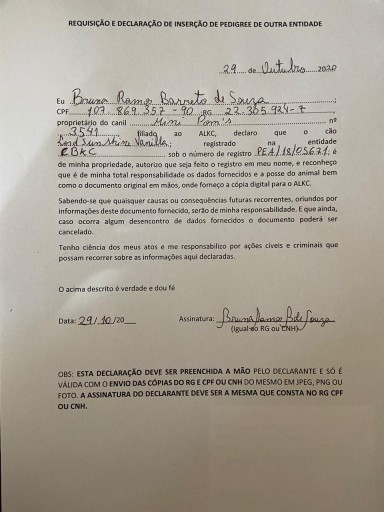 REQUISIÇÃO E DECLARAÇÃO DE INSERÇÃO DE PEDIGREE DE OUTRA ENTIDADE
29 de Outubro 2020
Eu Bruna Ramos Barreto de Souza;
CPF 107 869 357 - 90 RG 27.365.924-7,
proprietário do canil Mini Pom's nº
3541 filiado ao ALKC, declaro que o cão
Sunshine Vanilla; registrado na entidade
CBKC sob o número de registro PEA/18/05671, é
de minha propriedade, autorizo que seja feito o registro em meu nome, e reconheço
que é de minha total responsabilidade os dados fornecidos e a posse do animal bem
como o documento original em mãos, onde forneço a cópia digital para o ALKC.
Sabendo-se que quaisquer causas ou consequências futuras recorrentes, oriundos por
informações deste documento fornecido, serão de minha responsabilidade. E que ainda,
caso ocorra algum desencontro de dados fornecidos o documento poderá ser
cancelado.
Tenho ciência dos meus atos e me responsabilizo por ações cíveis e criminais que
possam recorrer sobre as informações aqui declaradas.
O acima descrito é verdade e dou fé
Data: 29/10/20 Assinatura: Bruna Ramos B de Souza
(Igual ao RG ou CNH)
OBS: ESTA DECLARAÇÃO DEVE SER PREENCHIDA A MÃO PELO DECLARANTE E SÓ É
VÁLIDA COM O ENVIO DAS CÓPIAS DO RG E CPF OU CNH DO MESMO EM JPEG, PNG OU
FOTO. A ASSINATURA DO DECLARANTE DEVE SER A MESMA QUE CONSTA NO RG CPF
OU CNH.